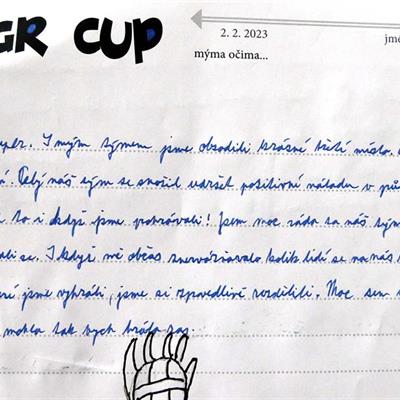 GR CUP
2. 2. 2023
jmé
mýma očima...
super. S mým týmem jsme obsadili krásné třetí místo.
á. Celý náš tým se snažil udržet pozitivní náladu v prů
i to i když jsme prohrávali! Jsem moc ráda za náš tým
ali se. I když mě občas znervózňovalo kolik lidí se na nás
eré jsme vyhráli, jsme si spravedlivě rozdělili. Moc sem
mohla tak bych hrála zas.